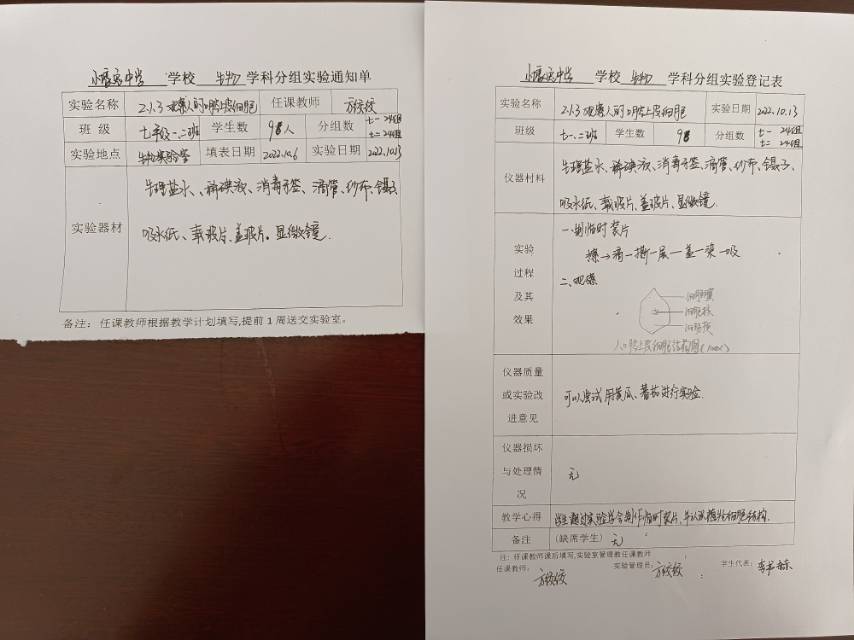 学校 生物 学科分组实验通知单
实验名称 2.1.3 观察人的口腔上皮细胞 任课教师
班 级 七年级一、二班 学生数 98人 分组数 七一 24组 七二 24组
实验地点 生物实验室 填表日期 2022.10.6 实验日期 2022.10.13
实验器材 生理盐水、稀碘液、消毒牙签、滴管、纱布、镊子
吸水纸、载玻片、盖玻片。显微镜.
备注: 任课教师根据教学计划填写,提前 1 周送交实验室。
学校 生物 学科分组实验登记表
实验名称 2.1.3 观察人的口腔上皮细胞 实验日期 2022.10.13
班级 七一、二班 学生数 98 分组数 七一 24组 七二 24组
仪器材料 生理盐水、稀碘液、消毒牙签、滴管、纱布、镊子、
吸水纸、载玻片、盖玻片、显微镜.
实验
过程
及其
效果
一.制临时装片
擦→滴一撕一展一盖一染一吸
二、观察
细胞膜
细胞核
细胞质
人口腔上皮细胞结构图
仪器质量
或实验改
进意见
可以尝试用黄瓜、番茄进行实验.
仪器损坏
与处理情
况
无
教学心得 学生通过实验学会制作临时装片,并认识植物细胞结构.
备注 (缺席学生) 无
注: 任课教师课后填写,实验室管理教任课教师
任课教师: 实验管理员: 学生代表: